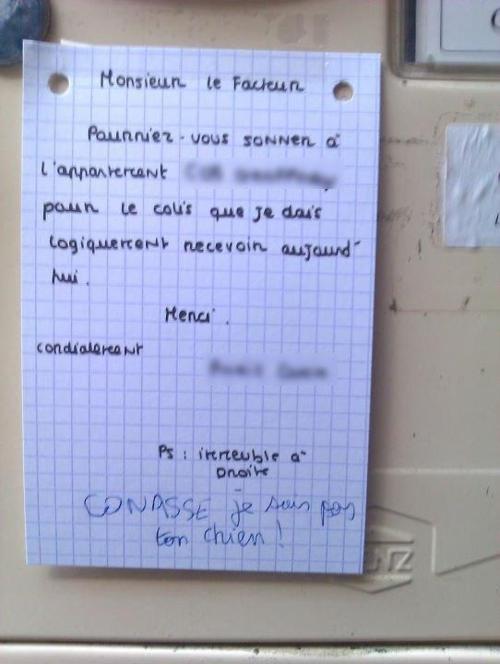 Monsieur le Facteur
Pourriez-vous sonner à
l'appartement
pour le colis que je dois
logiquement recevoir aujourd'
hui.
Merci.
cordialement
Ps : immeuble à
Droite
CONASSE je suis pas
ton chien !
NZ